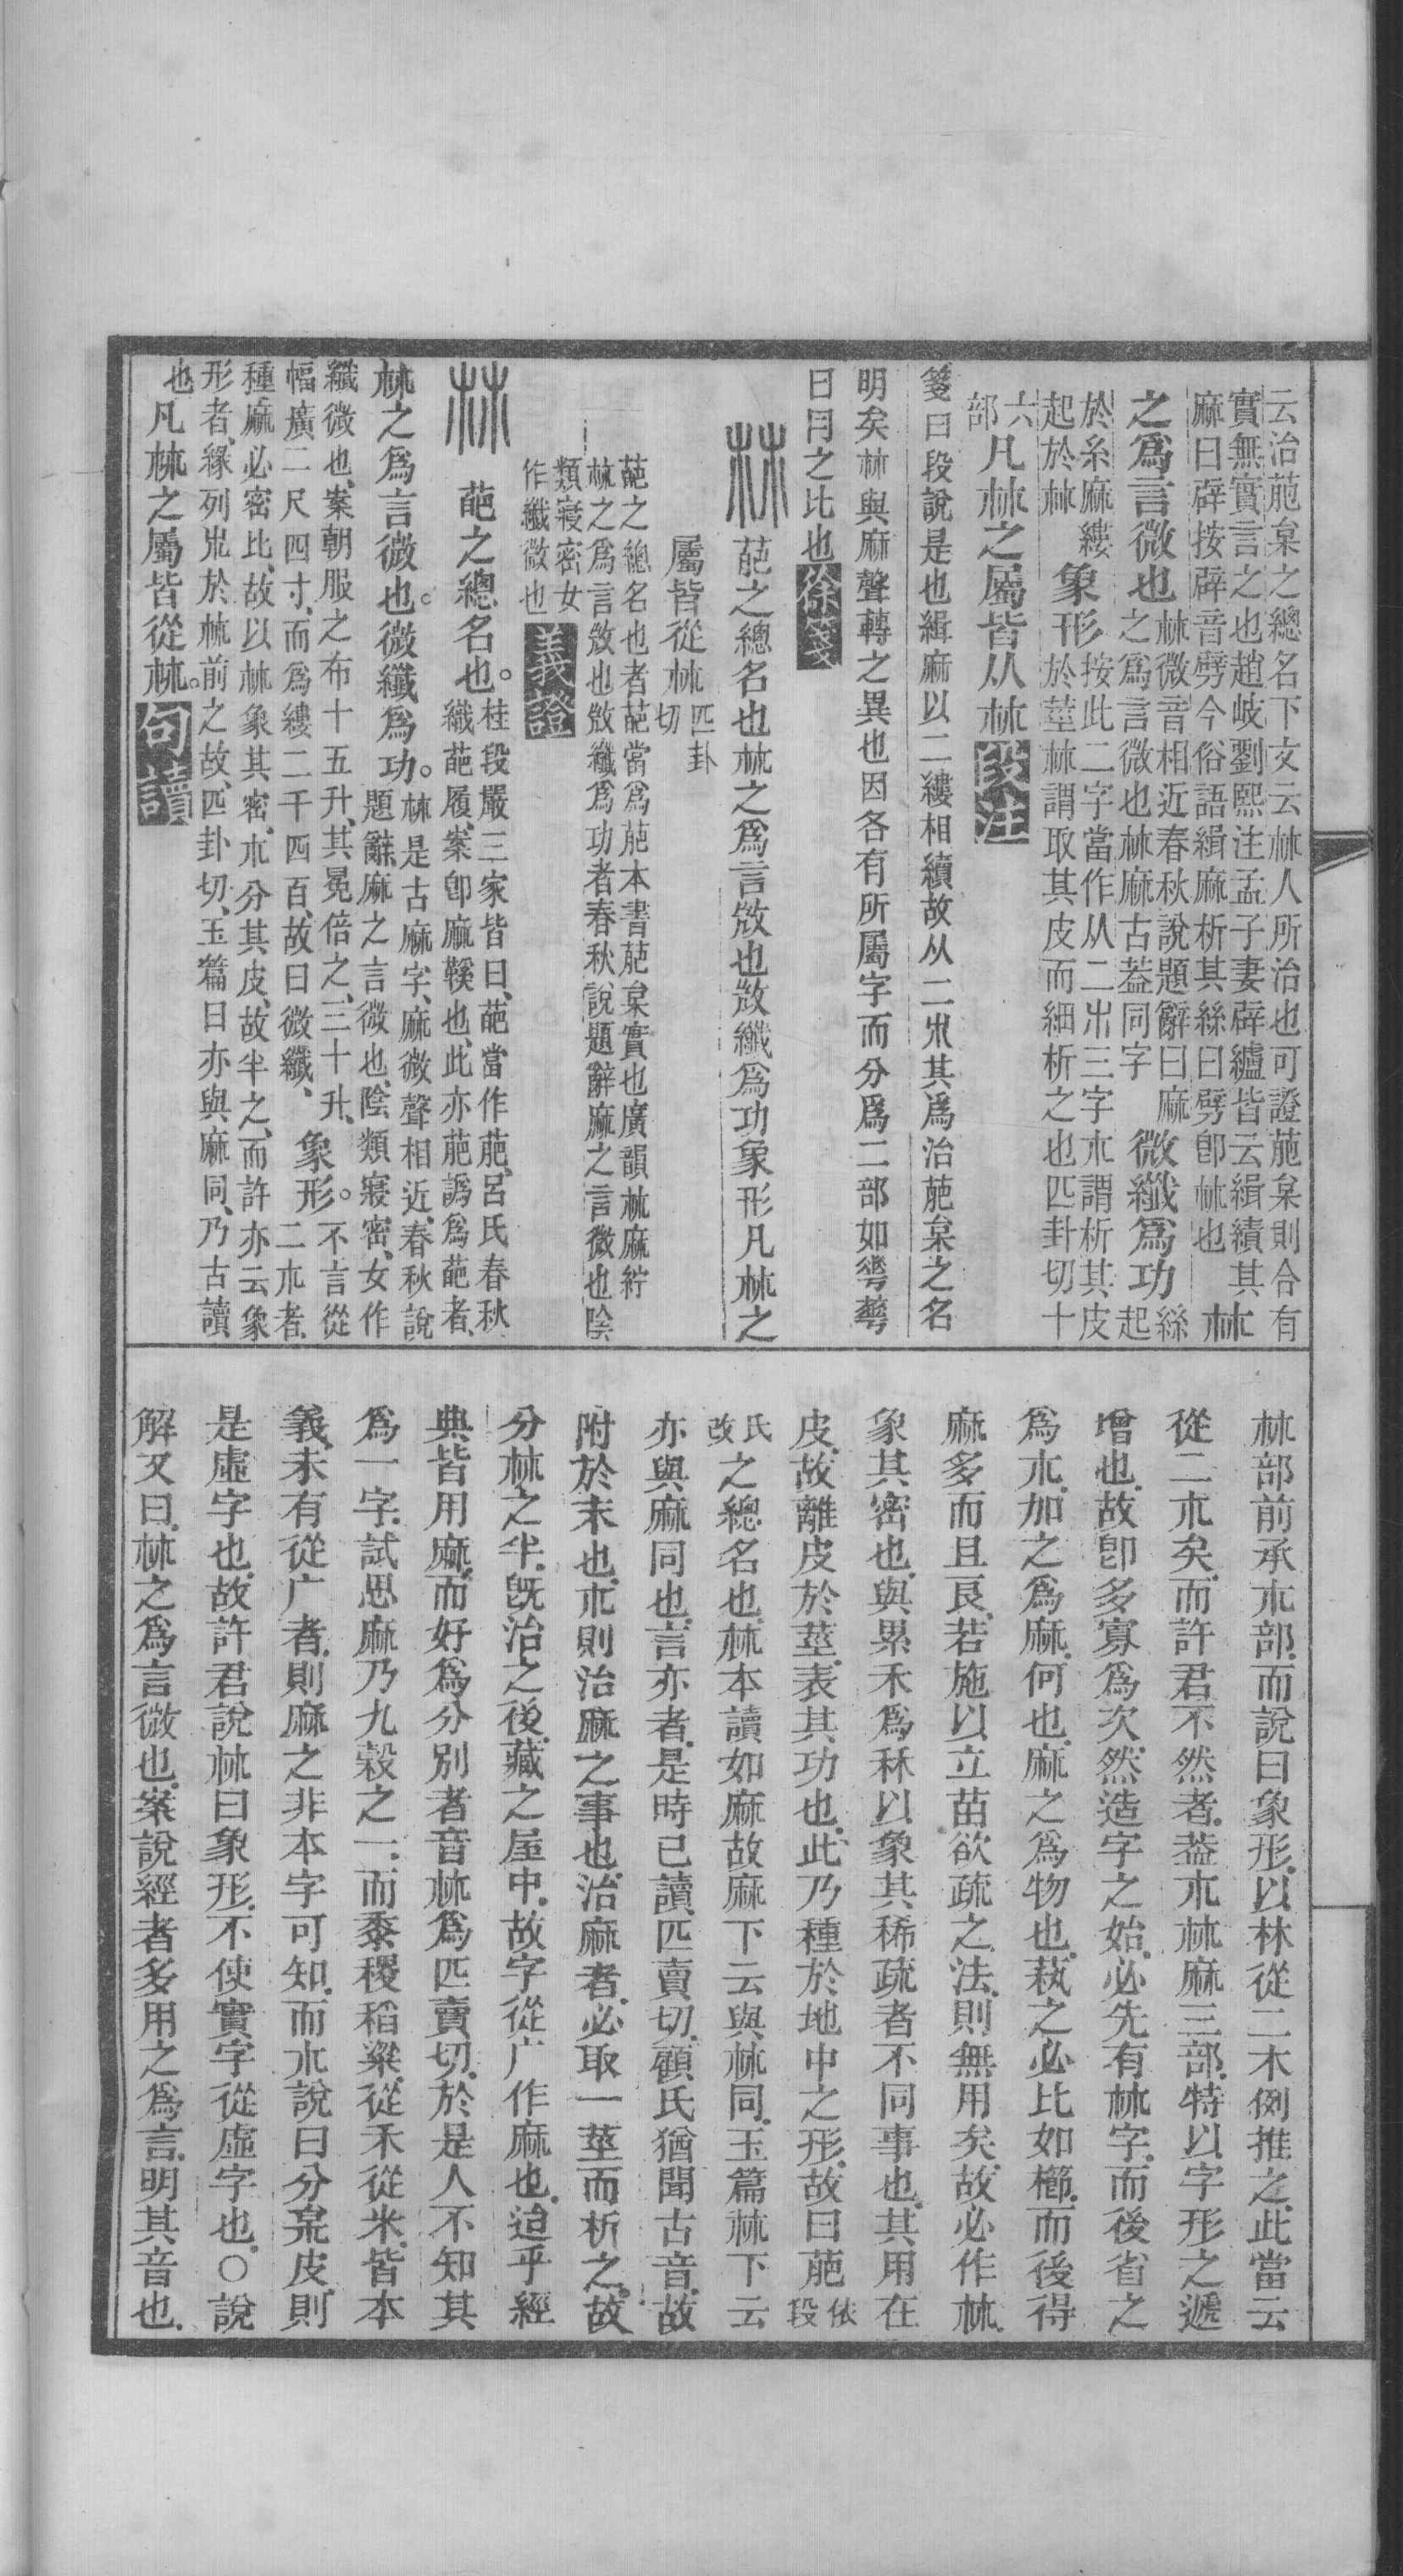 云治萉枲之總名下文云𣏟人所治也可證萉枲則合有
實無實言之也趙岐劉熙注孟子妻辟纑皆云緝績其
麻曰辟按辟音劈今俗語緝麻析其絲曰劈卽𣏟也𣏟
之爲言微也𣏟微音相近春秋說題辭曰麻
之爲言微也𣏟麻古葢同字微纖爲功絲
起
於糸麻縷
起於𣏟象形按此二字當作从二𣎳三字𣎳謂析其皮
於莖𣏟謂取其皮而細析之也匹卦切十
六
部凡𣏟之屬皆从𣏟段注
箋曰段說是也緝麻以二縷相續故从二𣎳其爲治萉枲之名
明矣𣏟與麻聲轉之異也因各有所屬字而分爲二部如𠌶蕚
日月之比也徐箋
𣏟萉之總名也𣏟之爲言㪔也㪔纖爲功象形凡𣏟之
屬皆從𣏟匹卦
切
葩之總名也者葩當爲萉本書萉枲實也廣韻𣏟麻紵
𣏟之爲言㪔也㪔纖爲功者春秋說題辭麻之言微也陰
類寢密女
作纖微也義證
𣏟葩之總名也。桂段嚴三家皆曰、葩當作萉、呂氏春秋
織葩屨、案卽麻鞵也、此亦萉譌爲葩者、
𣏟之爲言微也。微纖爲功。𣏟是古麻字、麻微聲相近、春秋說
題辭、麻之言微也、陰類寢密、女作
纖微也、案朝服之布十五升、其冕倍之、三十升、
幅廣二尺四寸、而爲縷二千四百、故曰微纖、象形。不言從
二𣎳者、
種麻必密比、故以𣏟象其密、𣎳分其皮、故半之、而許亦云象
形者、緣列𣎳於𣏟前之故、匹卦切、玉篇曰亦與麻同、乃古讀
也凡𣏟之屬皆從𣏟。句讀
𣏟部前承𣎳部、而說曰象形、以林從二木例推之、此當云
從二𣎳矣、而許君不然者、葢𣎳𣏟麻三部、特以字形之遞
增也、故卽多寡爲次、然造字之始、必先有𣏟字、而後省之
爲𣎳、加之爲麻、何也、麻之爲物也、蓺之必比如櫛、而後得
麻多而且良、若施以立苗欲疏之法、則無用矣、故必作𣏟、
象其密也、與累禾爲秝以象其稀疏者不同事也、其用在
皮、故離皮於莖、表其功也、此乃種於地中之形、故曰萉依
段
氏
改之總名也、𣏟本讀如麻故麻下云與𣏟同、玉篇𣏟下云
亦與麻同也、言亦者、是時已讀匹賣切、顧氏猶聞古音、故
附於末也、𣎳則治麻之事也、治麻者、必取一莖而析之、故
分𣏟之半、旣治之後、藏之屋中、故字從广作麻也、迨乎經
典皆用麻、而好爲分別者音𣏟爲匹賣切、於是人不知其
爲一字、試思麻乃九穀之一、而黍稷稻粱、從禾從米、皆本
義、未有從广者、則麻之非本字可知、而𣎳說曰分枲皮、則
是虛字也、故許君說𣏟曰象形、不使實字從虛字也、○說
解又曰、𣏟之爲言微也、案說經者多用之爲言、明其音也、